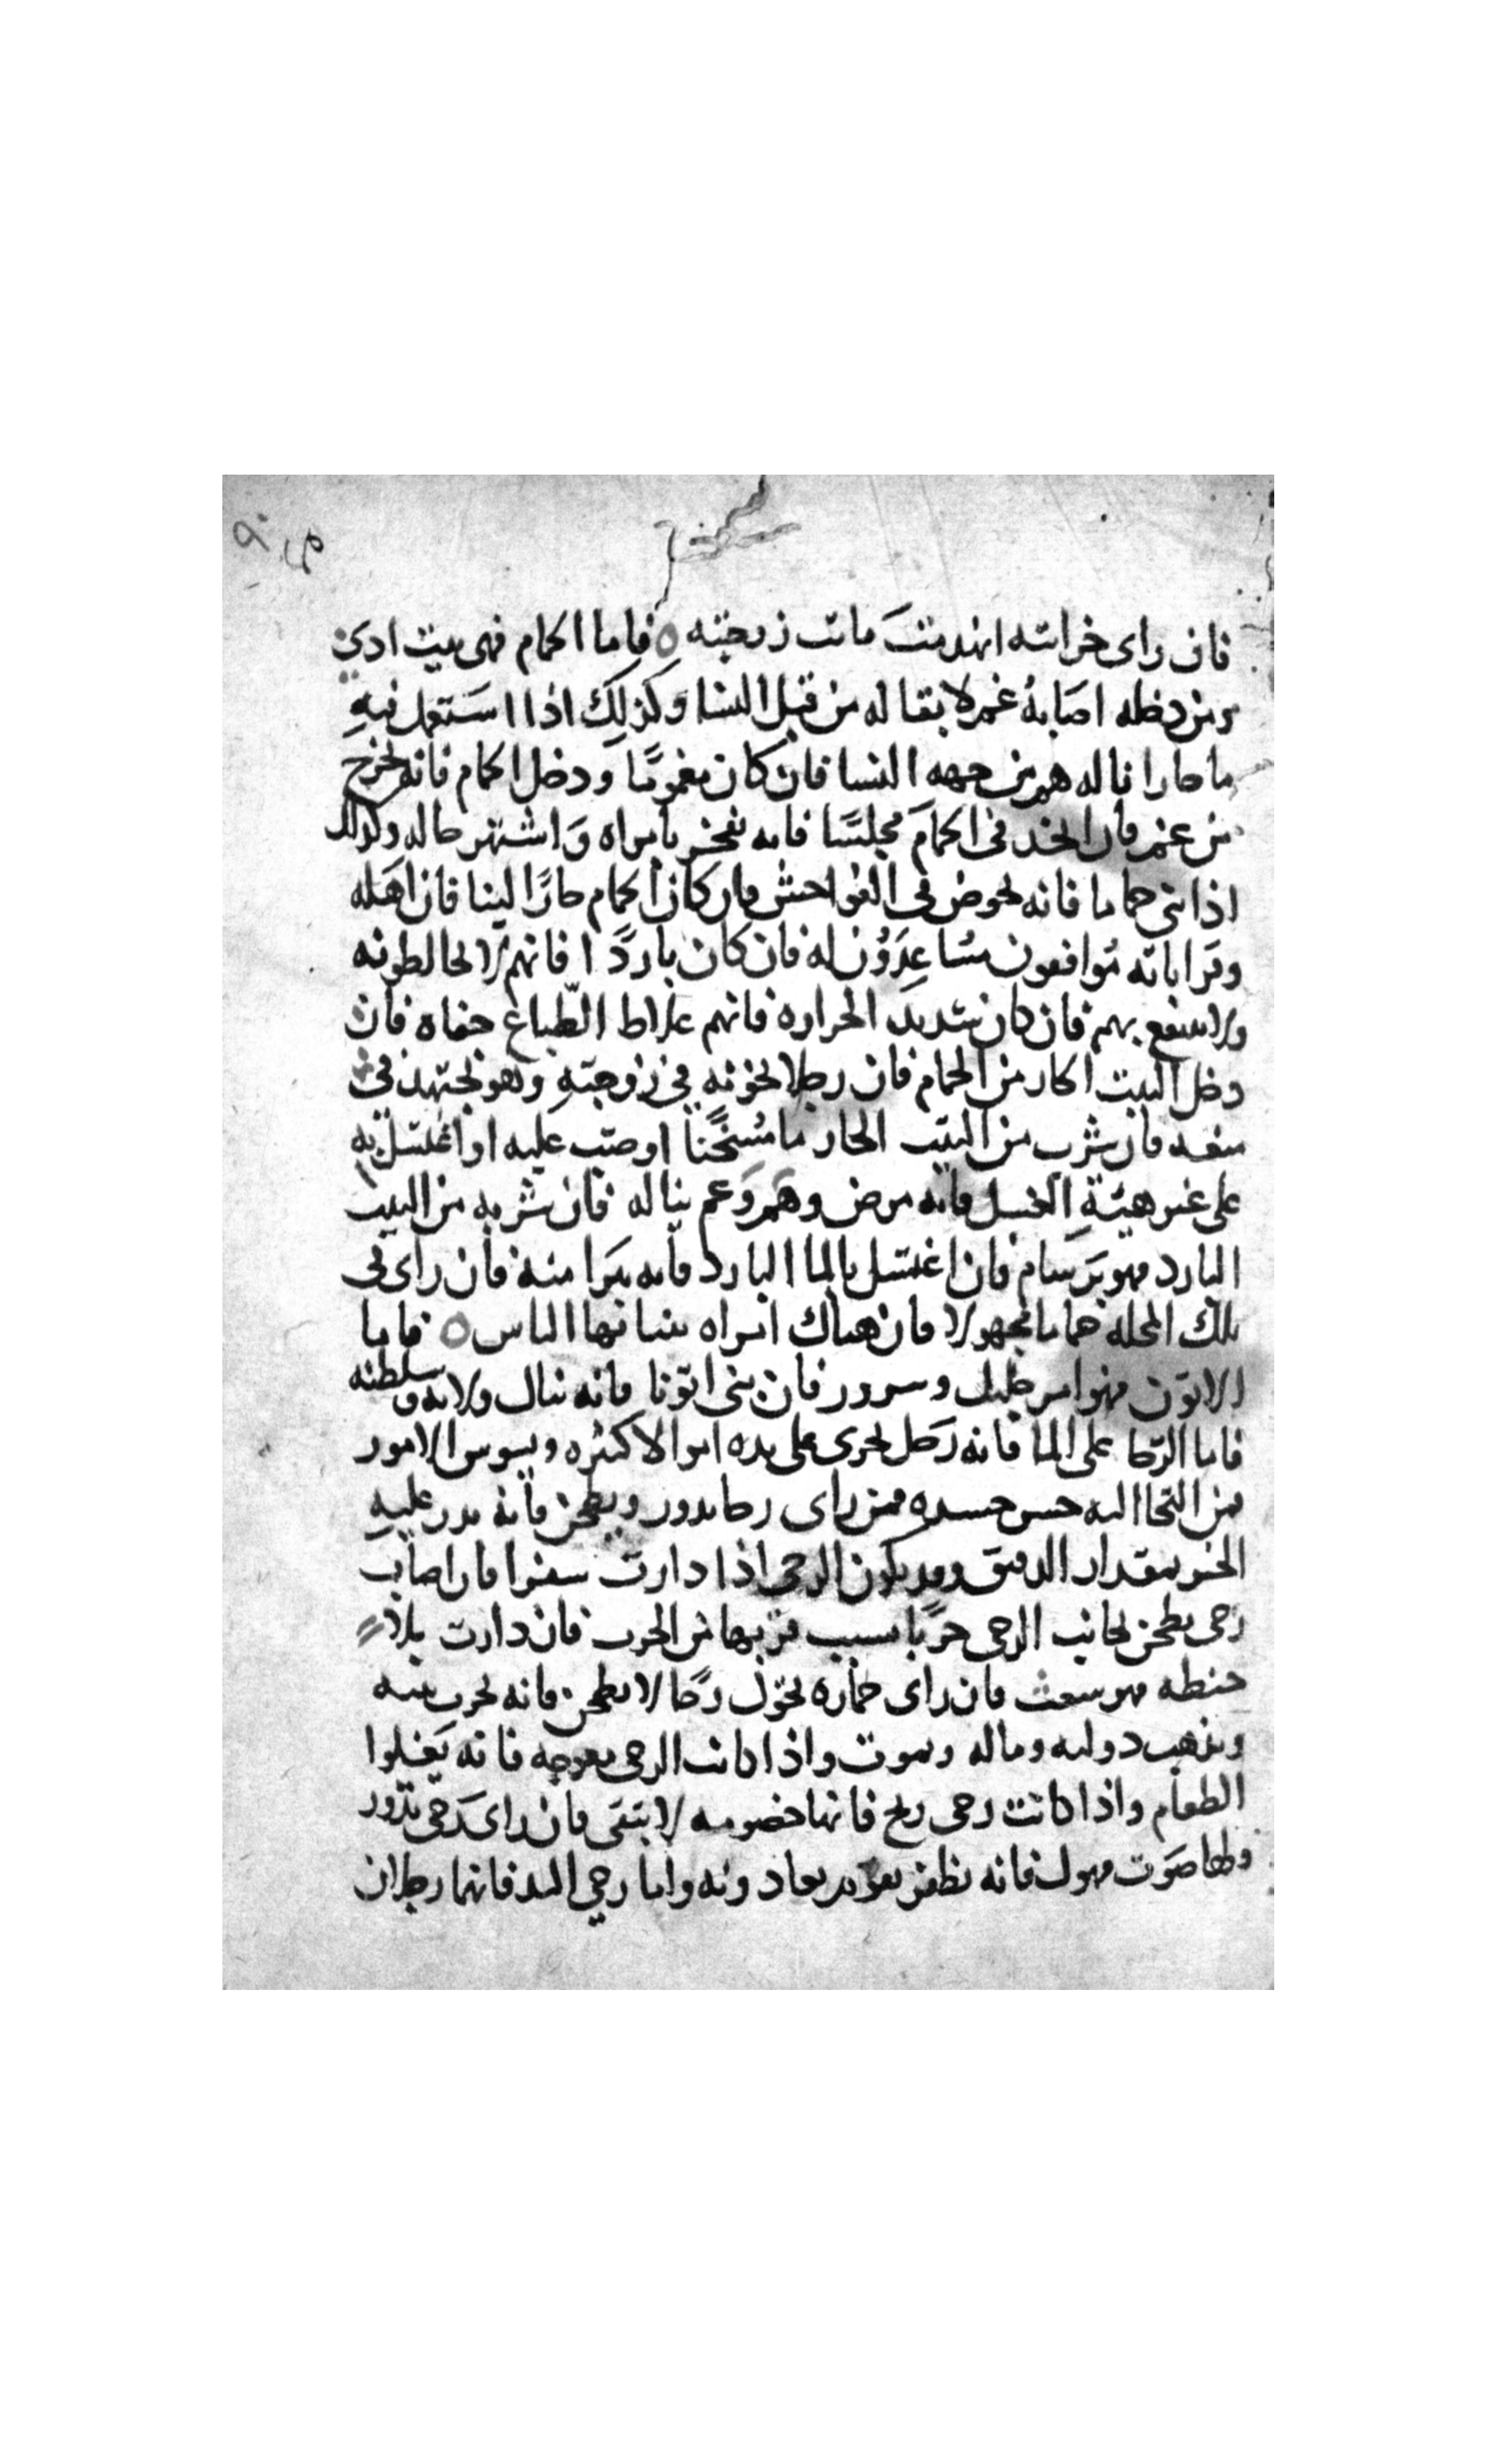 فان راى خزانته انهدمت ماتت زوجته ٥ فاما الحمام فهى بيت ادى
ومن دخله اصابه غم لا بقا له من قبل النسا وكذلك اذا استعمل فيه
ما حارا ناله هم من جهه النسا فان كان مغموما ودخل الحمام فانه يخرج
من غمه فان اتخذ فى الحمام مجلسا فانه يفجر بامراه واشتهر حاله وكذلك
اذا بنى حماما فانه يخوض فى الفواحش فان كان الحمام حارا لينا فان اهله
وقراباته توافقون مساعدون له فان كان باردا فانهم لا يخالطونه
ولا ينتفع بهم فان كان شديد الحراره فانهم غلاظ الطباع جفاه فان
دخل البيت الحار من الحمام فان رجلا يخونه فى زوجته وهو يجتهد فى
منعه فان شرب من البيت الحار ما مسخنا او صب عليه او اغتسل به
على غير هيئة الغسل فانه مرض وهم وغم يناله فان شربه من البيت
البارد فهو برسام فان اغتسل بالما البارد فانه يبرا منه فان راى فى
تلك المحله حماما مجهولا فان هناك امراه ينتابها الناس ٥ فاما
الاتون فهو امر جليل وسرور فان بنى اتونا فانه ينال ولايه وسلطنه
فاما الرحا على الما فانه رجل يجرى على يده اموالا كثيره ويسوس الامور
فمن التجا اليه حسن جسده فمن راى رحا يدور ويطحن فانه يدر عليه
الخير بمقدار الدقيق وقد يكون الرحى اذا دارت سفرا فان اصاب
رحى يطحن بجانب الرحى حربا بسبب قربها من الحرب فان دارت بلا
حنطه فهو سعت فان راى حماره يحول رحا لا يطحن فانه يخرب بيته
ويذهب دولته وماله ويموت واذا كانت الرحى معوجه فانه يغلوا
الطعام واذا كانت رحى ريح فانها خصومه لا تبقى فان راى رحى تدور
ولها صوت مهول فانه يظفر بعادونه واما رحى اليد فانهما رجلان